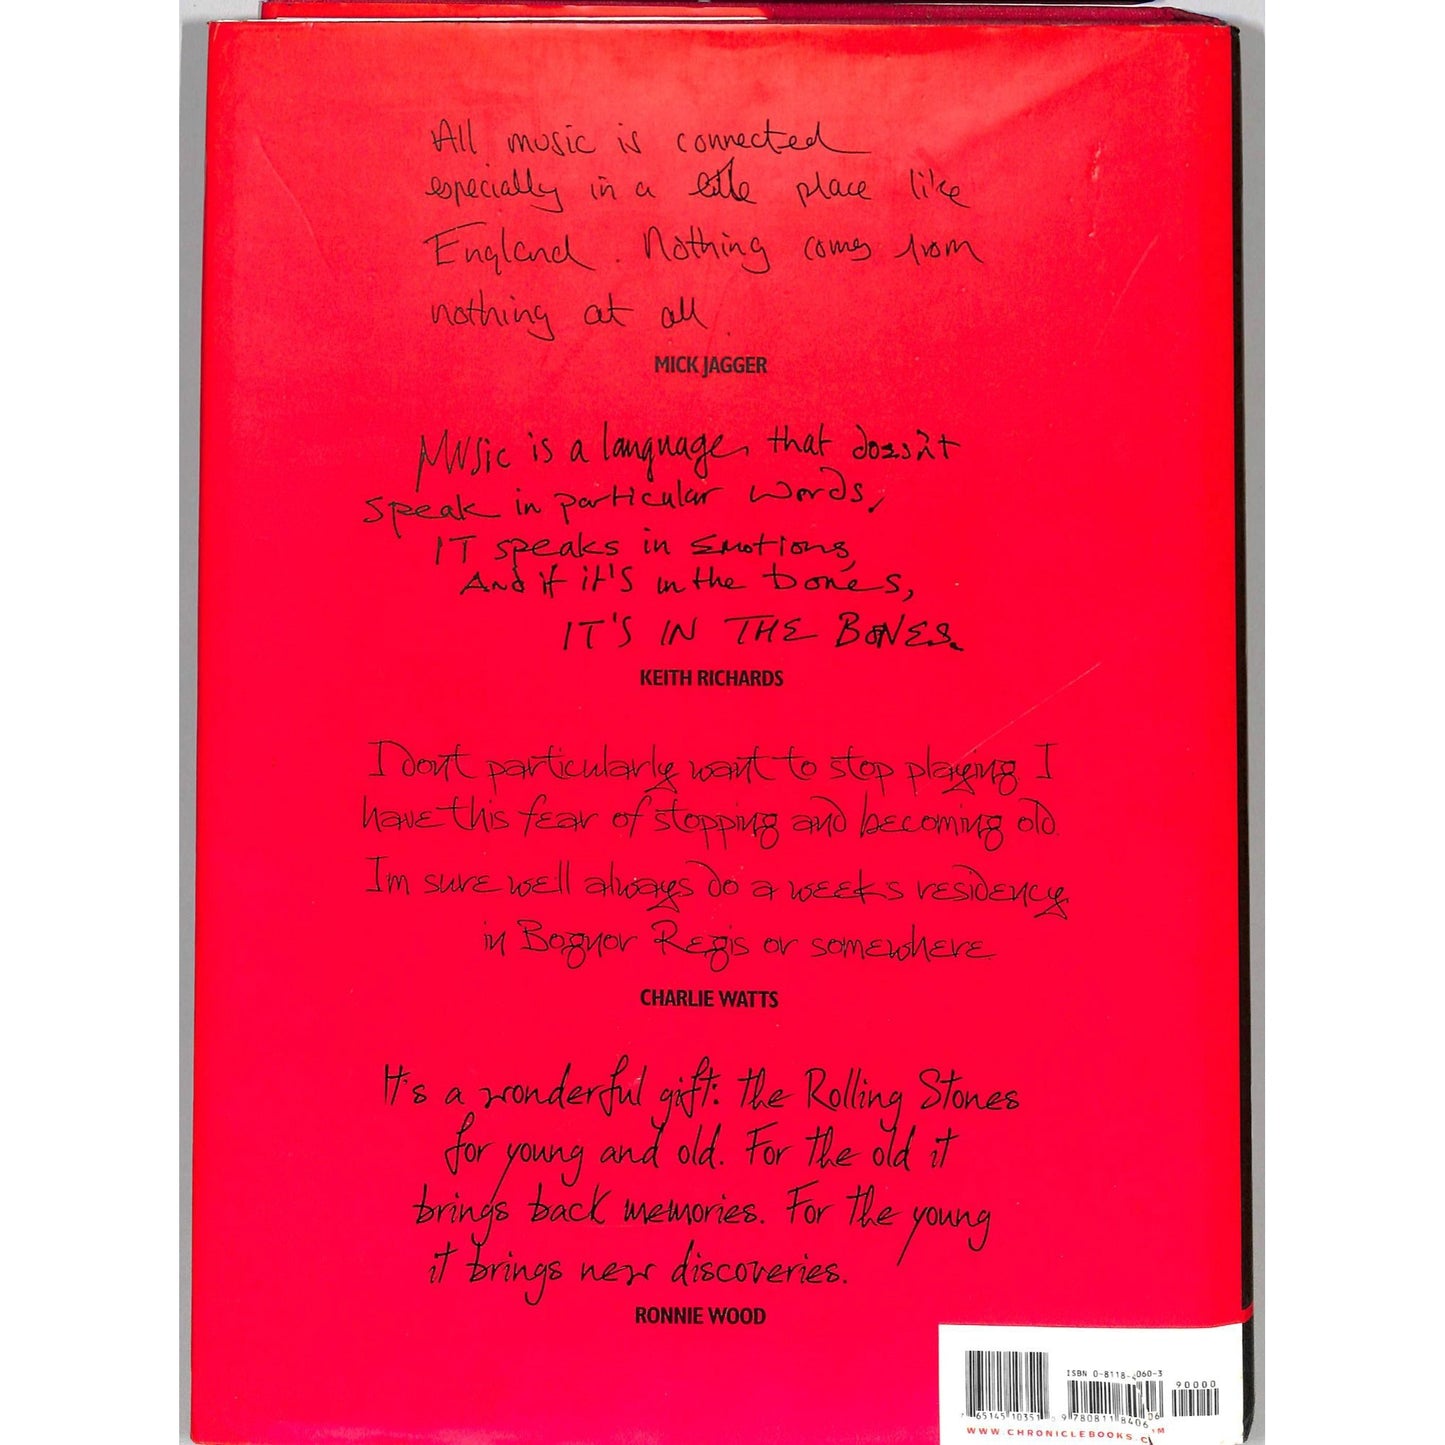 All music is connected
especially in a little place like
England. Nothing comes from
nothing at all.
MICK JAGGER
Music is a language, that doesn't
speak in particular words,
IT speaks in Emotions,
And if it's in the bones,
IT'S IN THE BONES.
KEITH RICHARDS
I dont particularly want to stop playing. I
have this fear of stopping and becoming old.
Im sure well always do a weeks residency
in Bognor Regis or somewhere
CHARLIE WATTS
It's a wonderful gift: the Rolling Stones
for young and old. For the old it
brings back memories. For the young
it brings new discoveries.
RONNIE WOOD
ISBN 0-8118-4060-3
90000
65145 10351
9 780811 8406
WWW.CHRONICLEBOOKS.C